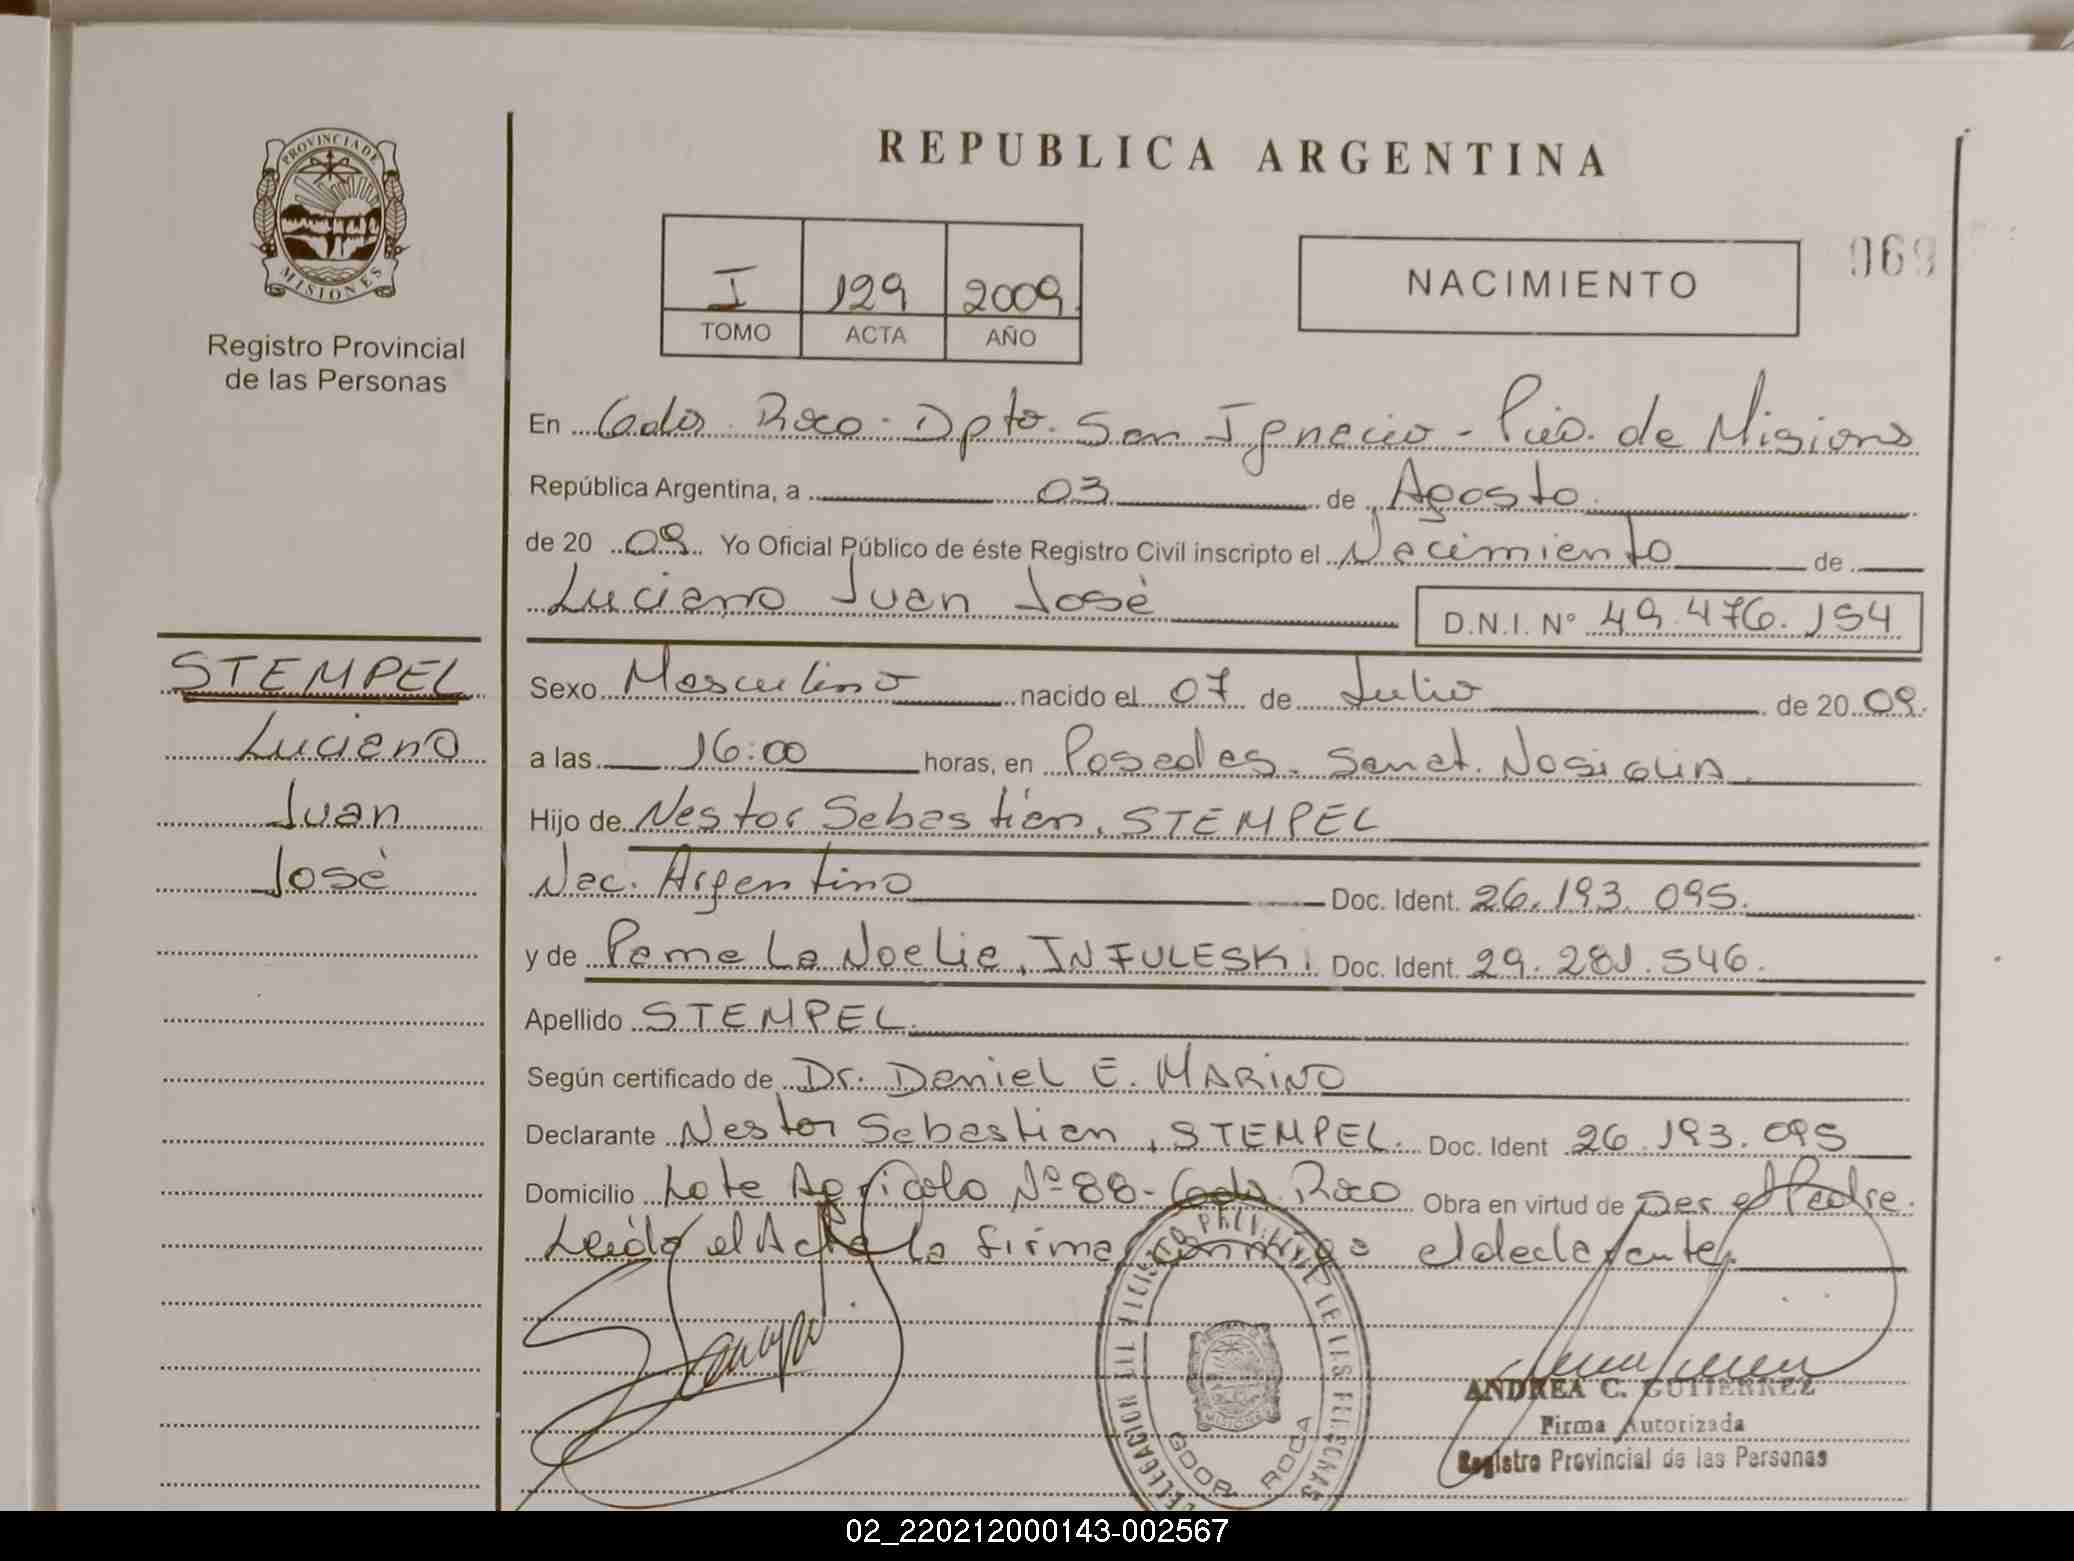 REPUBLICA ARGENTINA
PROVINCIA DE
MISIONES
Registro Provincial
de las Personas
I 129 2009
TOMO ACTA AÑO
NACIMIENTO
069
En Gdor. Roca - Dpto. San Ignacio - Pcia. de Misiones
República Argentina, a 03 de Agosto
de 20 09 Yo Oficial Público de éste Registro Civil inscripto el Nacimiento de
Luciano Juan José D.N.I. Nº 49.476.154
STEMPEL
Luciano
Juan
José
Sexo Masculino nacido el 07 de Julio de 20 09.
a las 16:00 horas, en Posadas. Sanat. Nosiglia.
Hijo de Nestor Sebastian, STEMPEL
Nac. Argentino Doc. Ident. 26.193.095.
y de Pamela Noelia, INFULESKI. Doc. Ident. 29.281.546.
Apellido STEMPEL.
Según certificado de Dr. Daniel E. MARINO
Declarante Nestor Sebastian, STEMPEL. Doc. Ident 26.193.095
Domicilio Lote Agricola Nº 88 - Gdor. Roca Obra en virtud de ser el Padre.
Leida el Acta la firma conmigo el declarante.
DELEGACION DEL REGISTRO PROVINCIAL DE LAS PERSONAS
GDOR. ROCA
ANDREA C. GUTIERREZ
Firma Autorizada
Registro Provincial de las Personas
02_220212000143-002567